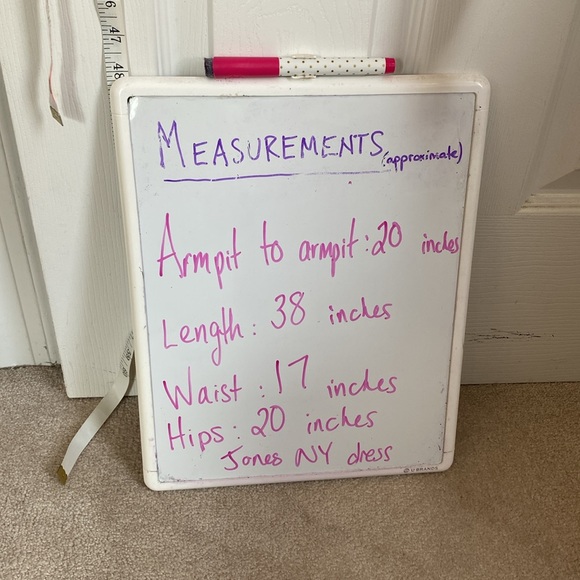 6
47
48
MEASUREMENTS (approximate)
Armpit to armpit: 20 inches
Length: 38 inches
Waist: 17 inches
Hips: 20 inches
Jones NY dress
U BRANDS